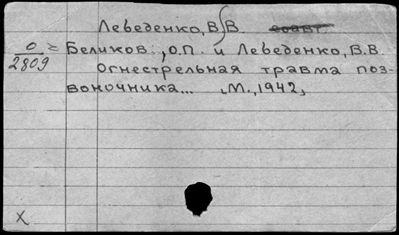 Лебеденко, В.В. соавт.
О/2809 = Беликов, О.П. и Лебеденко, В.В.
Огнестрельная травма поз-
воночника... М., 1942,
X